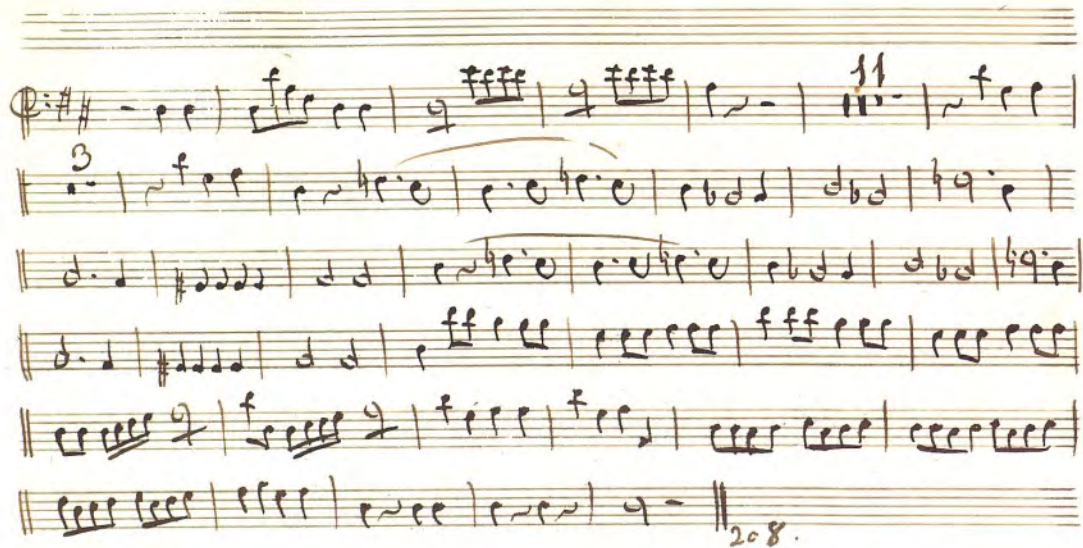 11
3
208.